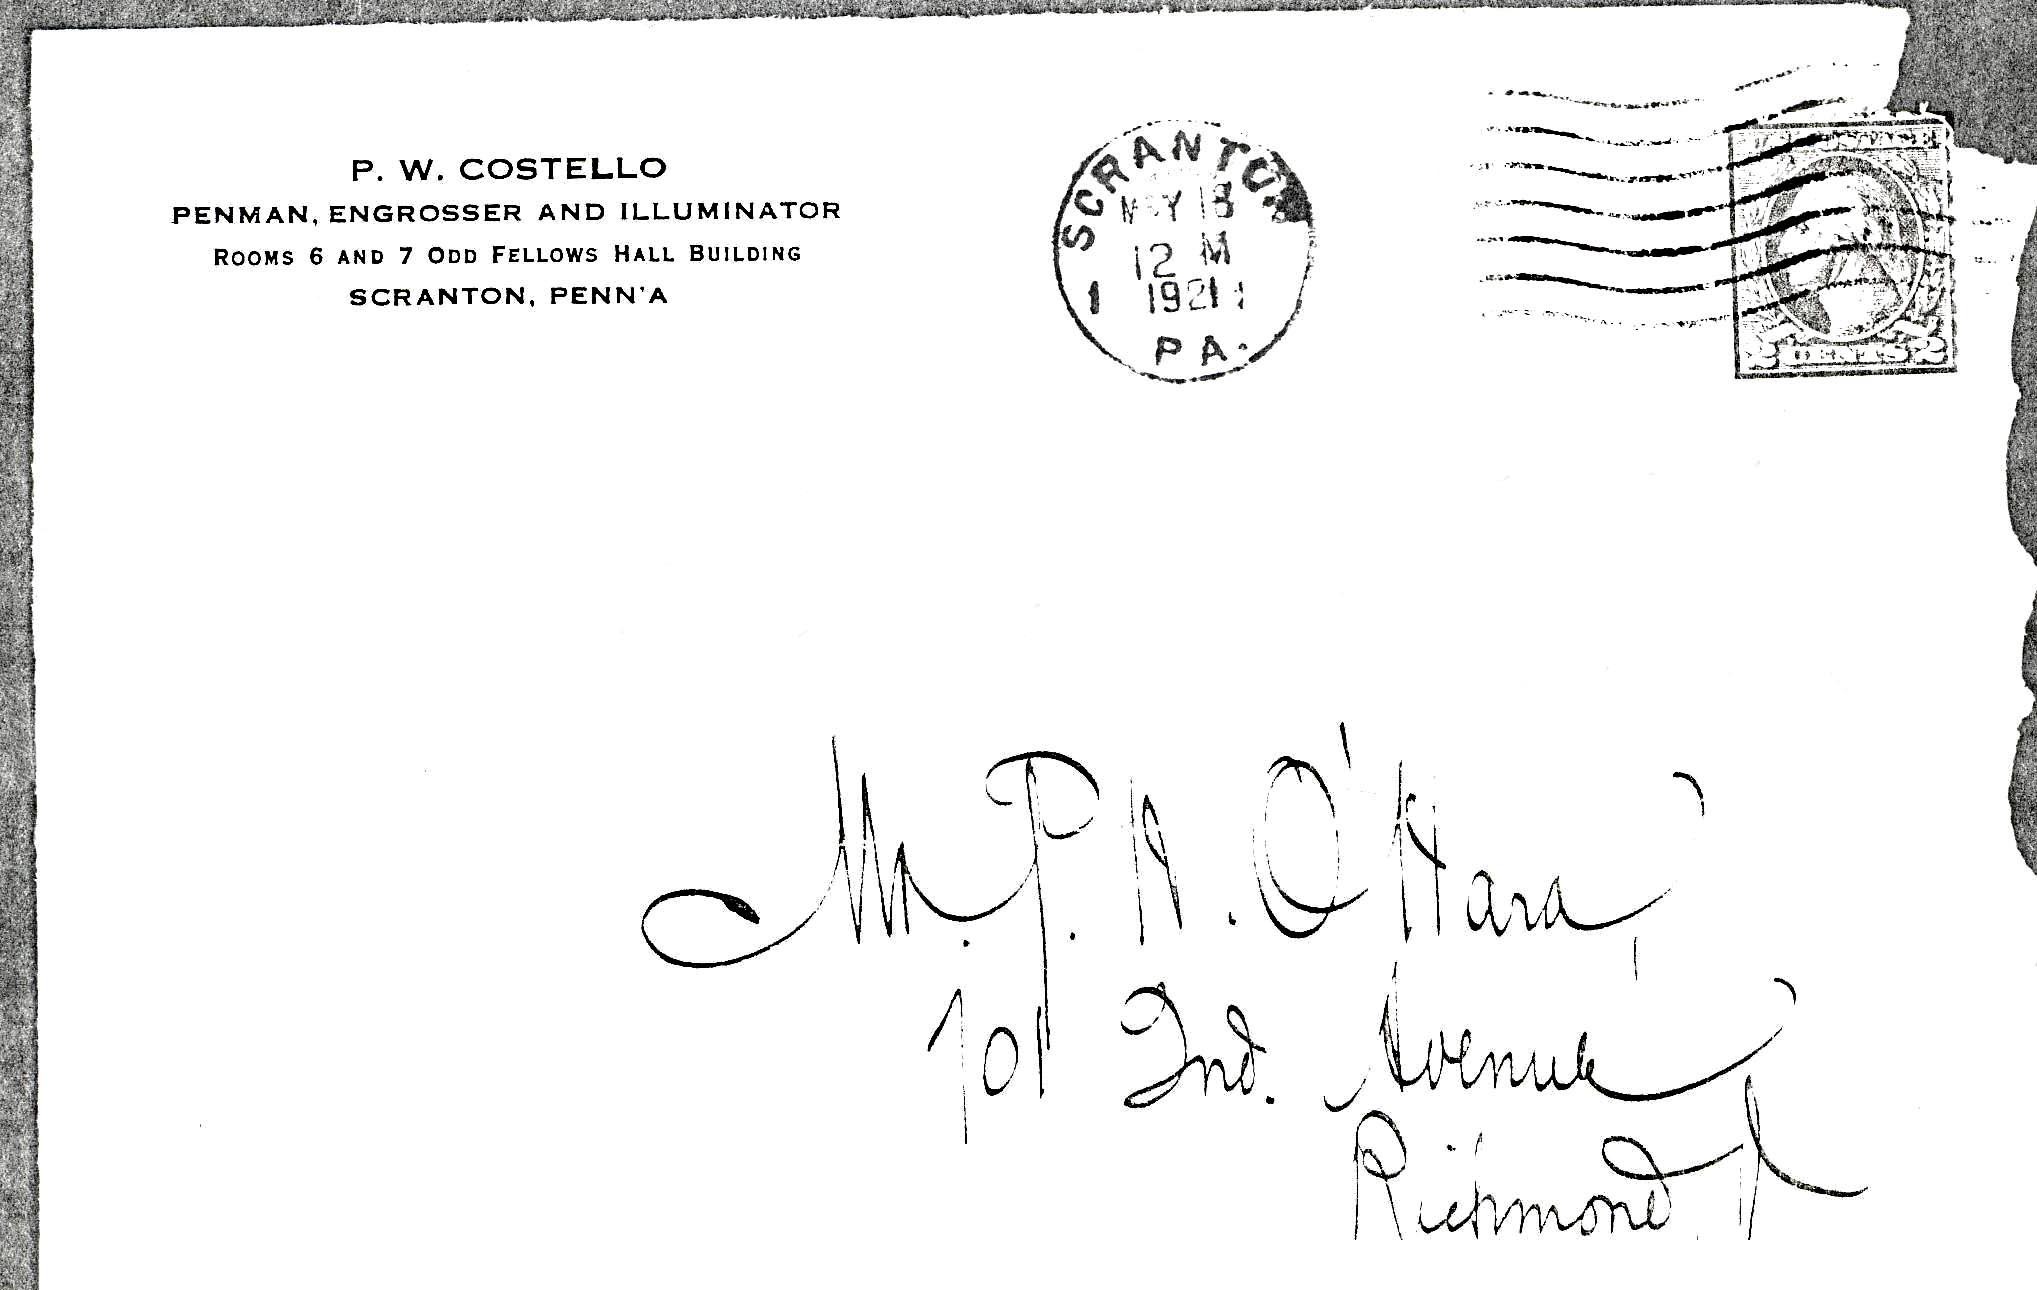 P. W. COSTELLO
PENMAN, ENGROSSER AND ILLUMINATOR
ROOMS 6 AND 7 ODD FELLOWS HALL BUILDING
SCRANTON, PENN'A
SCRANTON
18
12 M
1 1921
PA.
CENTS
Mr. P. H. O'Hara,
701 2nd. Avenue
Richmond